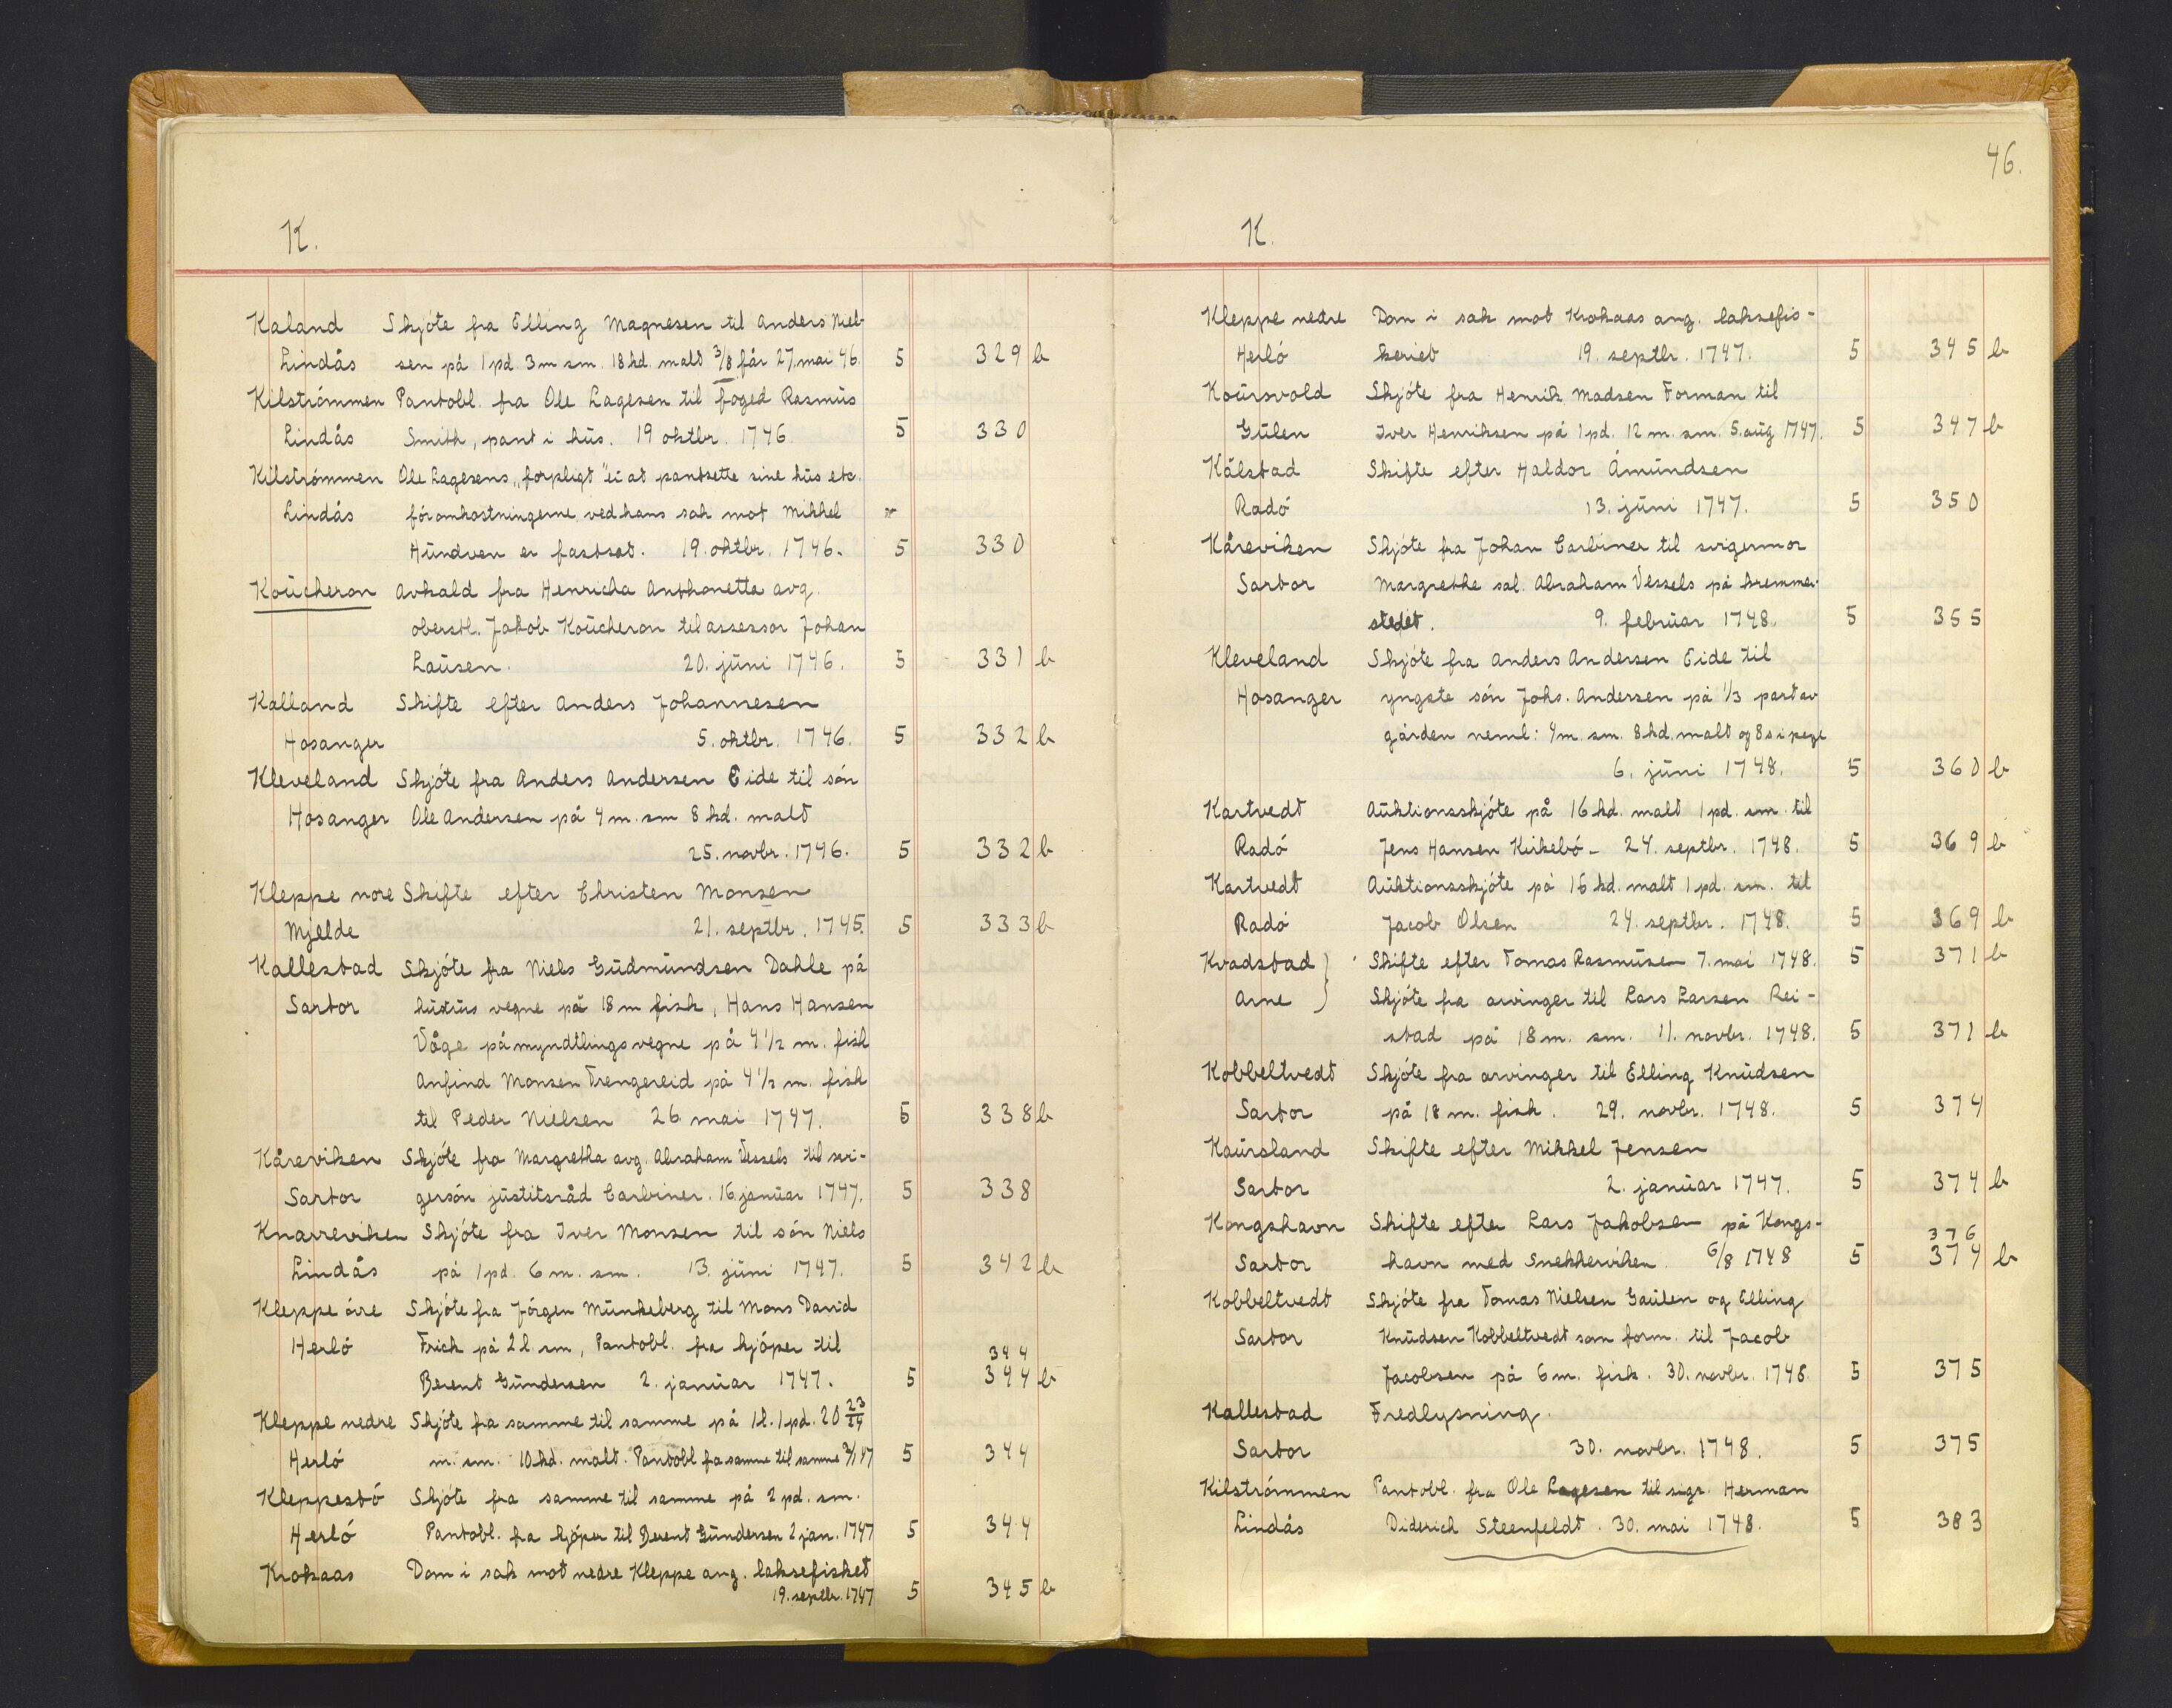 K.
Kaland Skjóte fra Elling Magnesen til Anders Niel-
Lindås sen på 1 pd. 3 m sm. 18 kd. malt 3/8 får 27. mai 46. 5 329 b
Kilströmmen Pantobl. fra Ole Lagesen til foged Rasmus
Lindås Smith, pant i hús. 19 oktbr. 1746. 5 330
Kilströmmen Ole Lagesens „forpligt" ei at pantsette sine hús etc.
Lindås fór omkostningerne ved hans sak mot Mikkel
Hundven er fastsat. 19. oktbr. 1746. 5 330
Koucheron Avkald fra Henricha Anthonetta avg.
oberstl. Jakob Koucheron til assessor Johan
Lausen. 20. juni 1746. 5 331 b
Kalland Skifte efter Anders Johannesen
Hosanger 5. oktbr. 1746. 5 332 b
Kleveland Skjóte fra Anders Andersen Eide til són
Hosanger Ole Andersen på 4 m. sm 8 kd. malt
25. novbr. 1746. 5 332 b
Kleppe nore Skifte efter Christen Monsen
Mjelde 21. septbr. 1745. 5 333 b
Kallestad Skjóte fra Niels Gudmundsen Dahle på
Sartor hustrus vegne på 18 m fisk, Hans Hansen
Våge på myndtlings vegne på 4 1/2 m. fisk
Anfind Monsen Trengereid på 4 1/2 m. fisk
til Peder Nielsen 26 mai 1747. 5 338 b
Kåreviken Skjóte fra Margretha avg. Abraham Vessels til svi-
Sartor gersón justitsråd Carbiner. 16 januar 1747. 5 338
Knarreviken Skjóte fra Iver Monsen til són Niels
Lindås på 1 pd. 6 m. sm. 13. juni 1747. 5 342 b
Kleppe óvre Skjóte fra Jórgen Munkeberg til Mons David
Herló Frich på 2 l. sm, Pantobl. fra kjóper til 344
Berent Gundersen 2. januar 1747. 5 344 b
Kleppe nedre Skjóte fra samme til samme på 1 l. 1 pd. 20 23/24
Herló m. sm. 10 kd. malt. Pantobl fra samme til samme 2/1 47 5 344
Kleppestó Skjóte fra samme til samme på 2 pd. sm.
Herló Pantobl. fra kjóper til Berent Gundersen 2 jan. 1747 5 344
Krokaas Dom i sak mot nedre Kleppe ang. laksefisket
19. septbr. 1747 5 345 b
46.
K.
Kleppe nedre Dom i sak mot Krokaas ang. laksefis-
Herló keriet 19. septbr. 1747. 5 345 b
Koursvold Skjóte fra Henrik Madsen Forman til
Gulen Iver Henriksen på 1 pd. 12 m. sm. 5. aug 1747. 5 347 b
Kålstad Skifte efter Haldor Åmundsen
Radó 13. juni 1747. 5 350
Kåreviken Skjóte fra Johan Carbiner til svigermor
Sartor Margrethe sal. Abraham Vessels på kremmer-
stedet. 9. februar 1748. 5 355
Kleveland Skjóte fra Anders Andersen Eide til
Hosanger yngste són Johs. Andersen på 1/3 part av
gården neml: 4 m. sm. 8 kd. malt og 8 s i penge
6. juni 1748. 5 360 b
Kartvedt Auktionsskjóte på 16 kd. malt 1 pd. sm. til
Radó Jens Hansen Kirkebó - 24. septbr. 1748. 5 369 b
Kartvedt Auktionsskjóte på 16 kd. malt 1 pd. sm. til
Radó Jacob Olsen 24. septbr. 1748. 5 369 b
Kvadstad Skifte efter Tomas Rasmusen 7. mai 1748. 5 371 b
Arne Skjóte fra arvinger til Lars Larsen Rei-
stad på 18 m. sm. 11. novbr. 1748. 5 371 b
Kobbeltvedt Skjóte fra arvinger til Elling Knudsen
Sartor på 18 m. fisk. 29. novbr. 1748. 5 374
Kaursland Skifte efter Mikkel Jensen
Sartor 2. januar 1747. 5 374 b
Kongshavn Skifte efter Lars Jakobsen på Kongs- 376
Sartor havn med Snekkerviken. 6/8 1748 5 374 b
Kobbeltvedt Skjóte fra Tomas Nielsen Gaulen og Elling
Sartor Knudsen Kobbeltvedt som form. til Jacob
Jacobsen på 6 m. fisk. 30. novbr. 1748. 5 375
Kallestad Fredlysning.
Sartor 30. novbr. 1748. 5 375
Kilströmmen Pantobl. fra Ole Lagesen til sigr. Herman
Lindås Diderich Steenfeldt. 30. mai 1748. 5 383